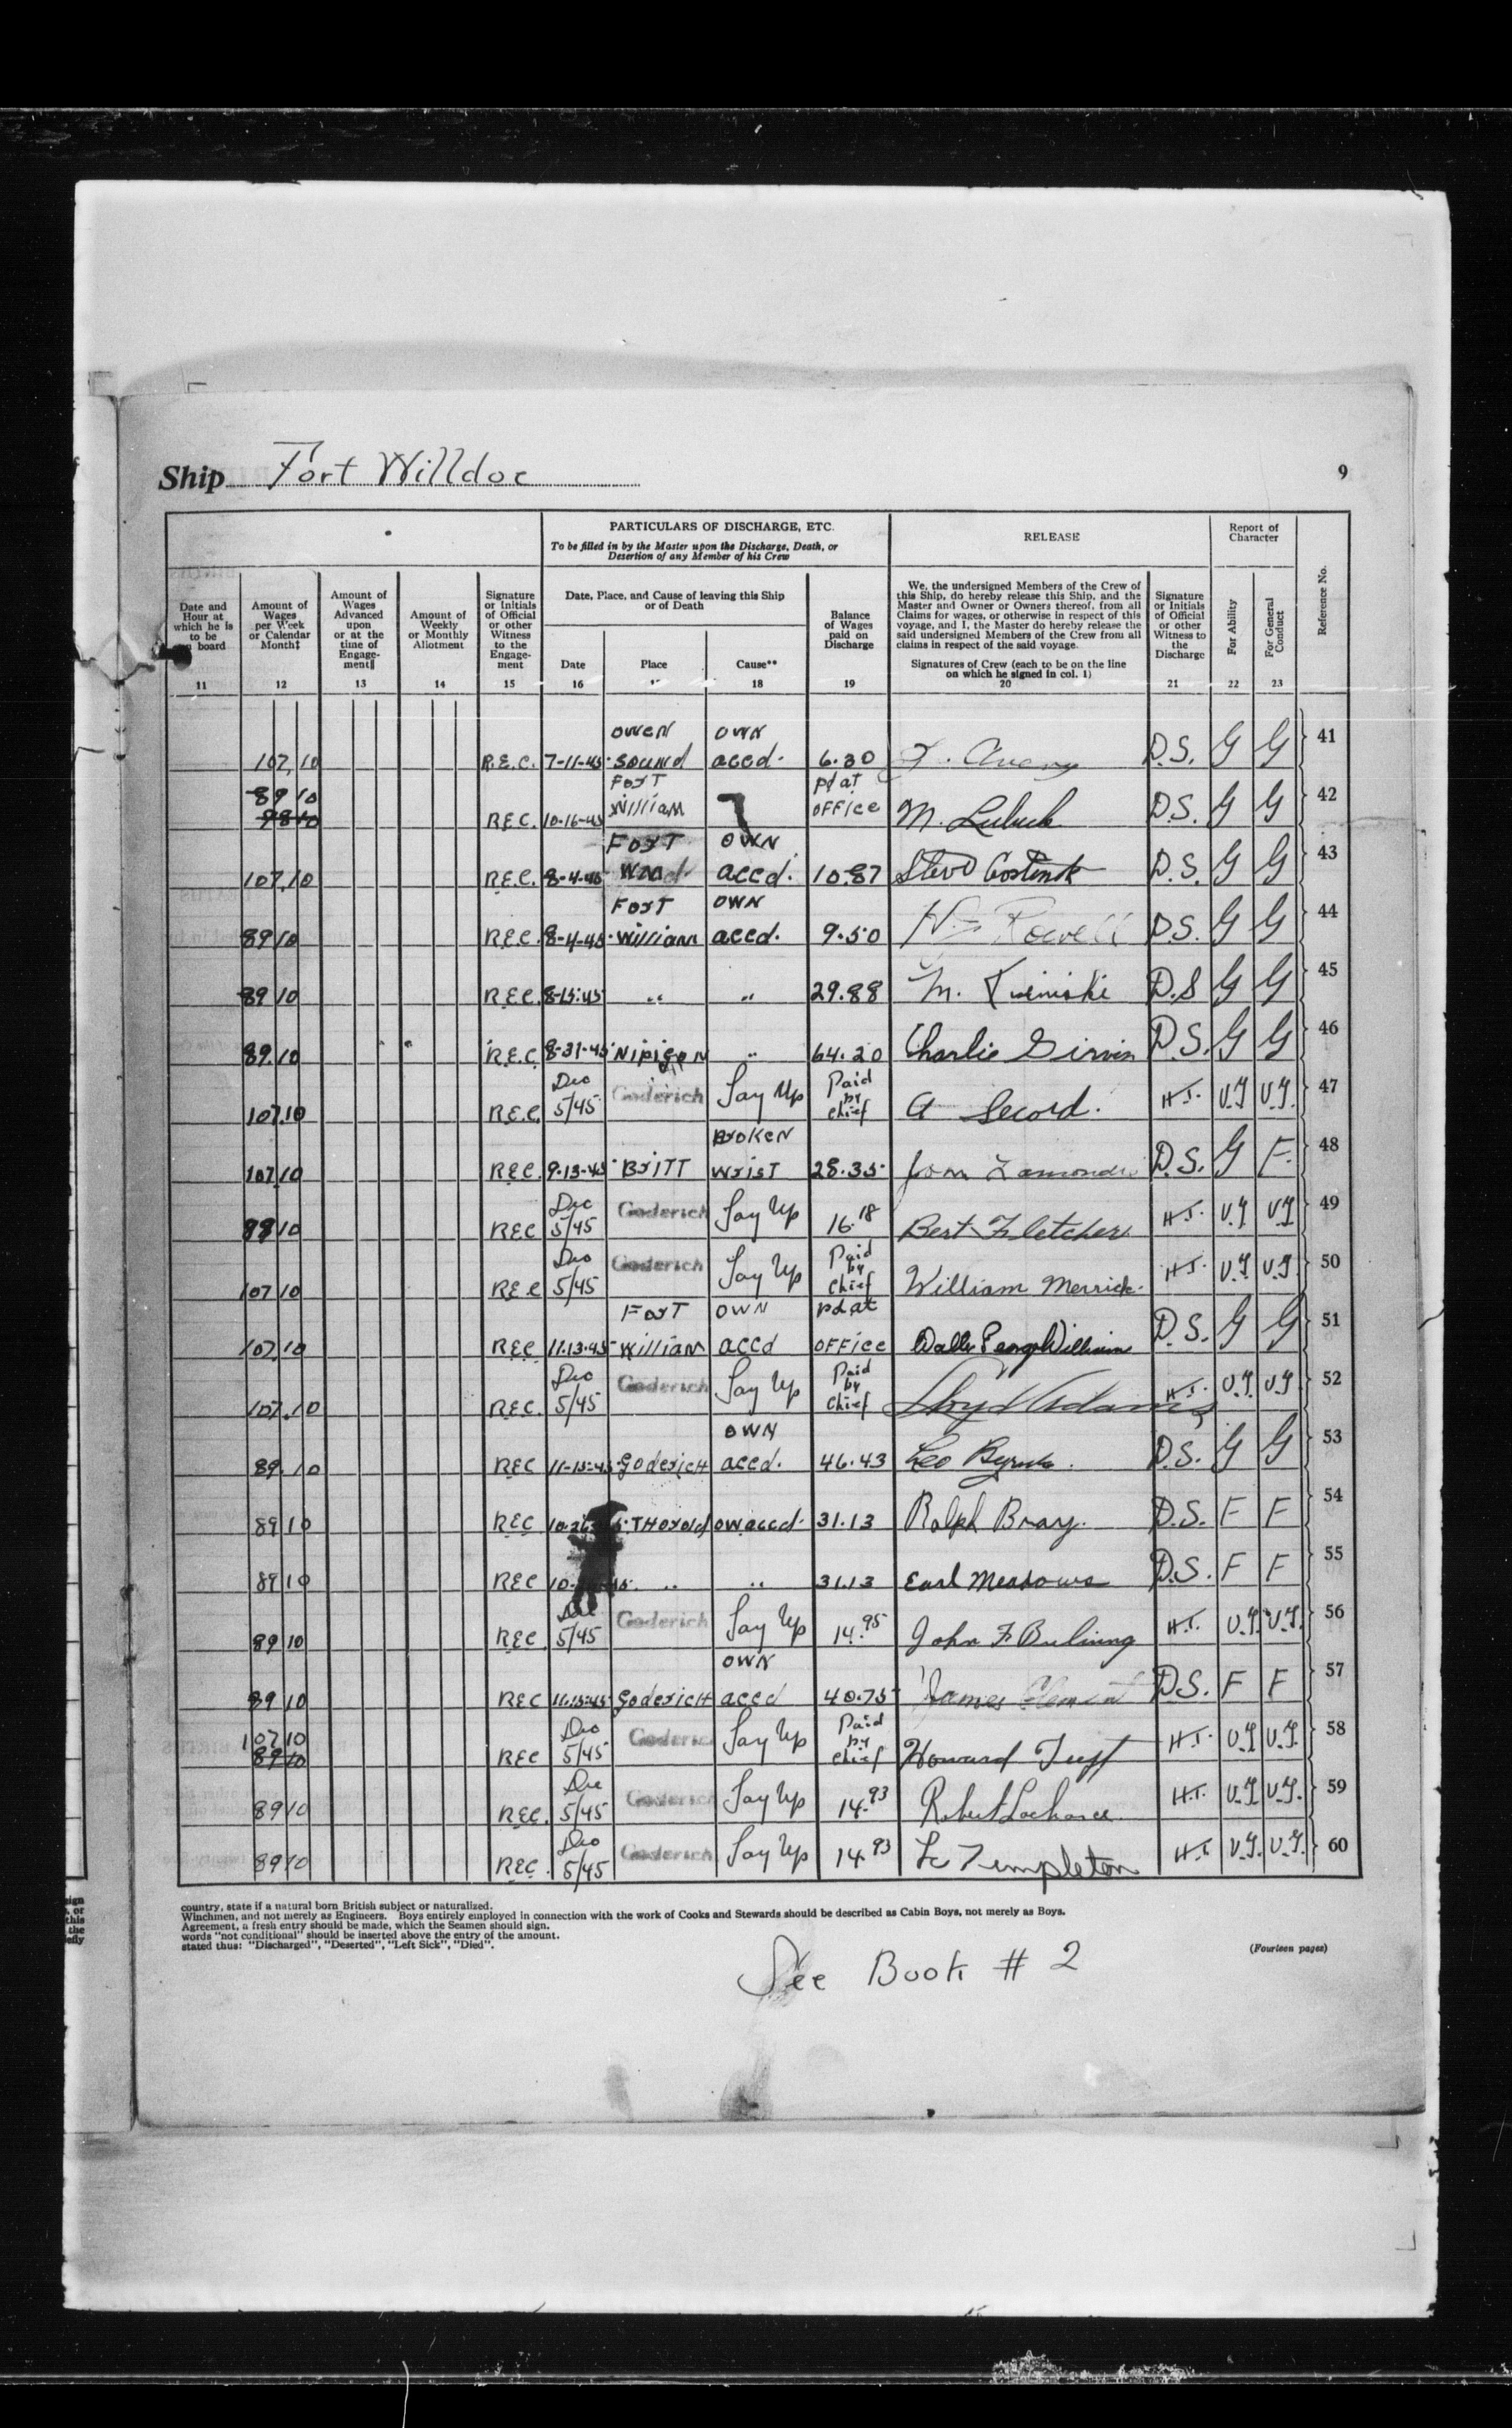 Ship Fort Willdoc
9
PARTICULARS OF DISCHARGE, ETC.
To be filled in by the Master upon the Discharge, Death, or
Desertion of any Member of his Crew
RELEASE
Report of
Character
Reference No.
Date and
Hour at
which he is
to be
on board
Amount of
Wages
per Week
or Calendar
Month‡
Amount of
Wages
Advanced
upon
or at the
time of
Engage-
ment‖
Amount of
Weekly
or Monthly
Allotment
Signature
or Initials
of Official
or other
Witness
to the
Engage-
ment
Date, Place, and Cause of leaving this Ship
or of Death
Date
Place
Cause**
Balance
of Wages
paid on
Discharge
We, the undersigned Members of the Crew of
this Ship, do hereby release this Ship, and the
Master and Owner or Owners thereof, from all
Claims for wages, or otherwise in respect of this
voyage, and I, the Master do hereby release the
said undersigned Members of the Crew from all
claims in respect of the said voyage.
Signatures of Crew (each to be on the line
on which he signed in col. 1)
Signature
or Initials
of Official
or other
Witness to
the
Discharge
For Ability
For General
Conduct
11 12 13 14 15 16 18 19 20 21 22 23
107.10 R.E.C. 7-11-45 Owen Sound own accd. 6.30 D.S. G G 41
89 10 98 10 R.E.C. 10-16-45 Fort William pd at office M. D.S. G G 42
107.10 R.E.C. 8-4-45 Fort Wm own accd. 10.87 D.S. G G 43
89 10 R.E.C. 8-4-45 Fort William own accd. 9.50 D.S. G G 44
89 10 R.E.C. 8-15-45 " " 29.88 M. D.S G G 45
89.10 R.E.C 8-31-45 Nipigon " 64.20 Charlie Girvin D.S. G G 46
107.10 R.E.C. Dec 5/45 Goderich Lay Up Paid by Chief A Secord. H.T. V.G V.G. 47
107.10 R.E.C. 9-13-45 Britt Broken wrist 28.35 D.S. G F. 48
89 10 REC Dec 5/45 Goderich Lay Up 16.18 Bert Fletcher H.T. V.G V.G 49
107 10 R.E.C Dec 5/45 Goderich Lay Up Paid by Chief William Merrick. H.T. V.G V.G. 50
107.10 REC 11-13-45 Fort William own accd pd at office Walter George William D.S. G G 51
107.10 REC. Dec 5/45 Goderich Lay Up Paid by Chief Lloyd Adams H.T. V.G. V.G 52
89.10 REC 11-15-45 Goderich own accd. 46.43 Leo D.S. G G 53
89 10 REC Thorold ow accd. 31.13 Ralph Bray. D.S. F F 54
89 10 REC " " 31.13 Earl Meadows D.S. F F 55
89 10 REC. Dec 5/45 Goderich Lay Up 14.95 John F H.T. V.G. V.G. 56
89 10 REC 11-15-45 Goderich own accd 40.75 James D.S. F F 57
107 10 89 10 REC Dec 5/45 Goderich Lay Up Paid by Chief Howard H.T. V.G V.G. 58
89 10 REC. Dec 5/45 Goderich Lay Up 14.93 Robert Lachance H.T. V.G V.G. 59
89 10 REC. Dec 5/45 Goderich Lay Up 14.93 Templeton H.T. V.G. V.G. 60
country, state if a natural born British subject or naturalized.
Winchmen, and not merely as Engineers. Boys entirely employed in connection with the work of Cooks and Stewards should be described as Cabin Boys, not merely as Boys.
Agreement, a fresh entry should be made, which the Seamen should sign.
words "not conditional" should be inserted above the entry of the amount.
stated thus: "Discharged", "Deserted", "Left Sick", "Died".
(Fourteen pages)
See Book # 2